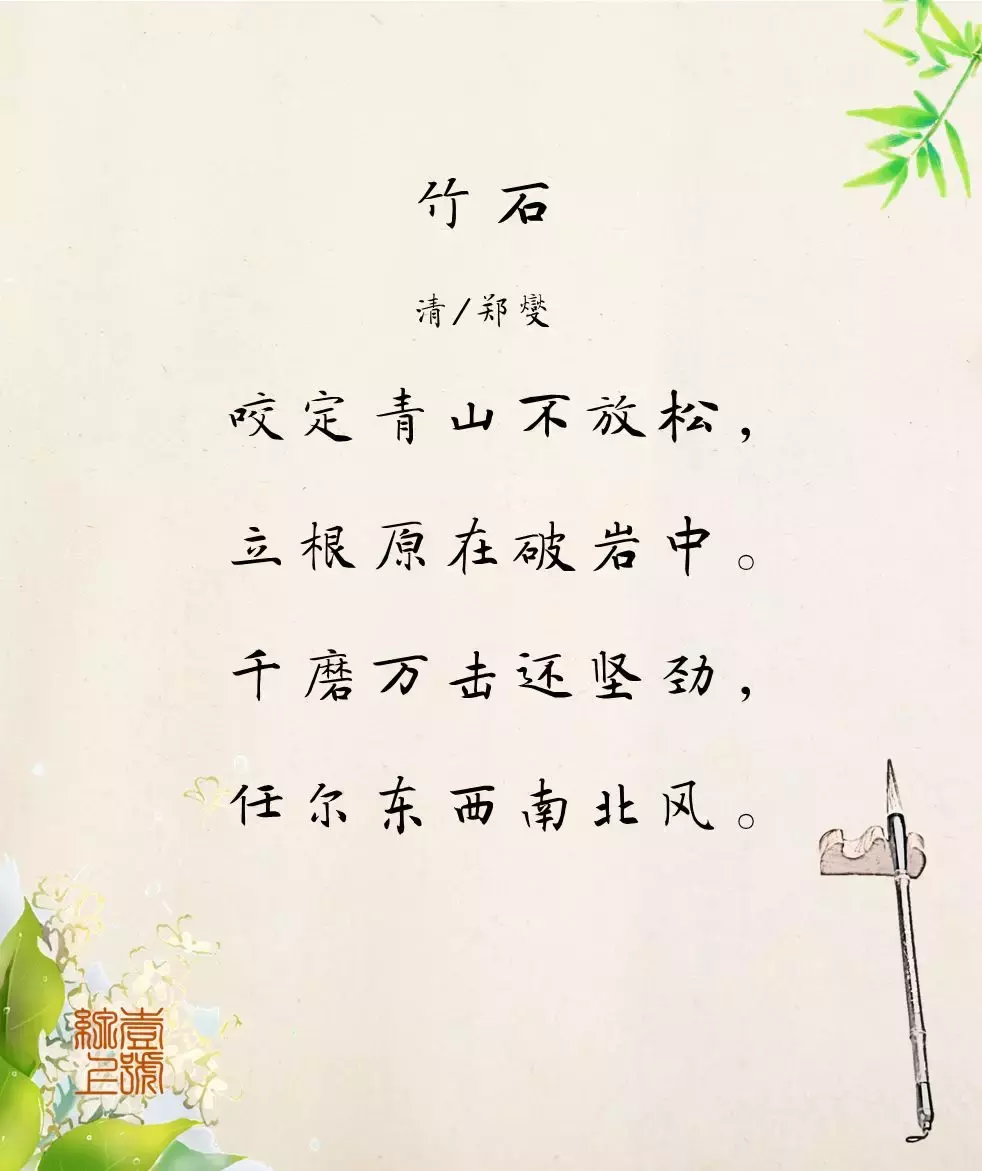 竹石
清/郑燮
咬定青山不放松，
立根原在破岩中。
千磨万击还坚劲，
任尔东西南北风。
壹號
線上